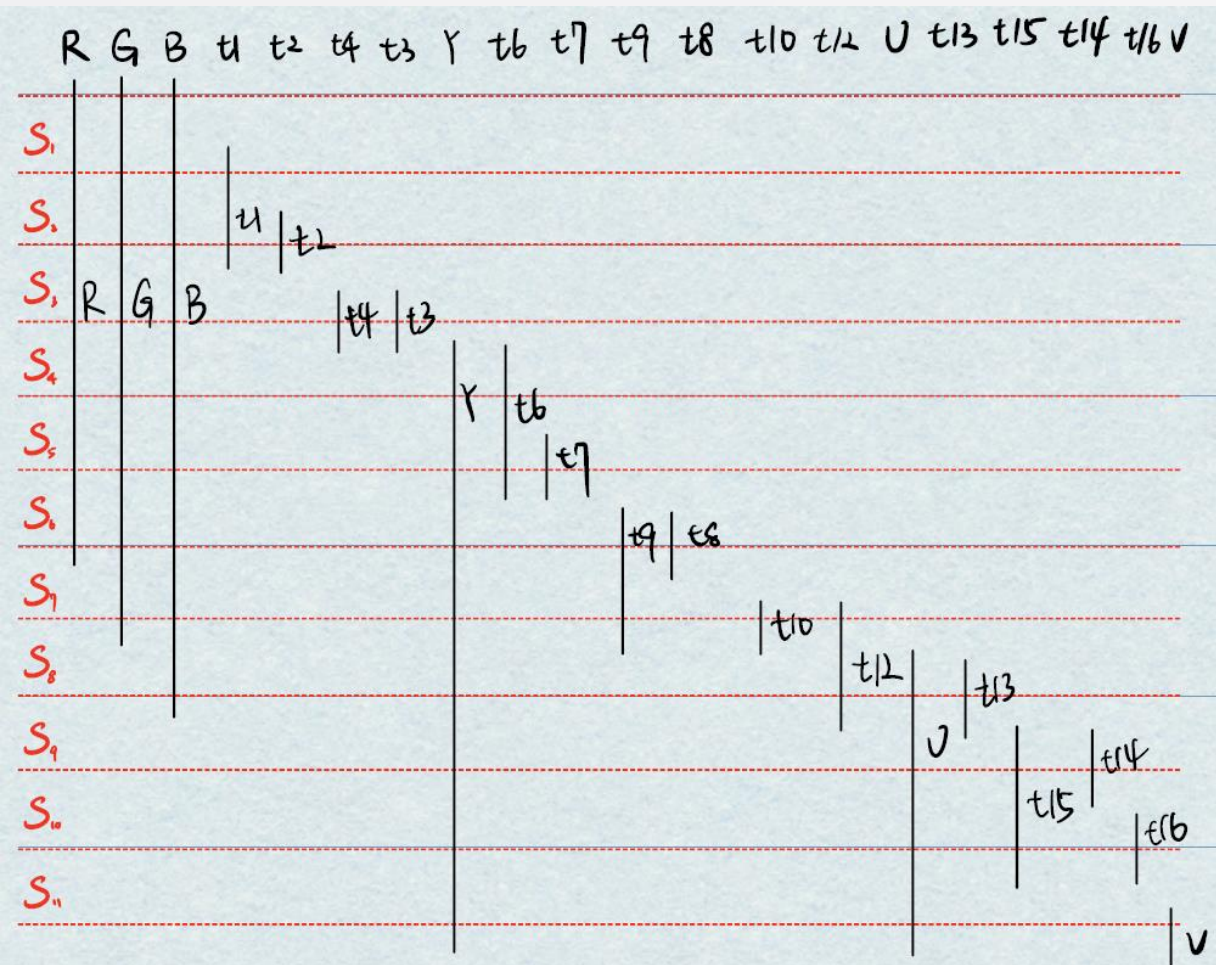 R G B t1 t2 t4 t3 Y t6 t7 t9 t8 t10 t12 U t13 t15 t14 t16 V
S₁
S₂ t1 t2
S₃ R G B t4 t3
S₄
Y t6
S₅ t7
S₆ t9 t8
S₇
t10
S₈ t12 t13
S₉ U t14
S₁₀ t15 t16
S₁₁
V